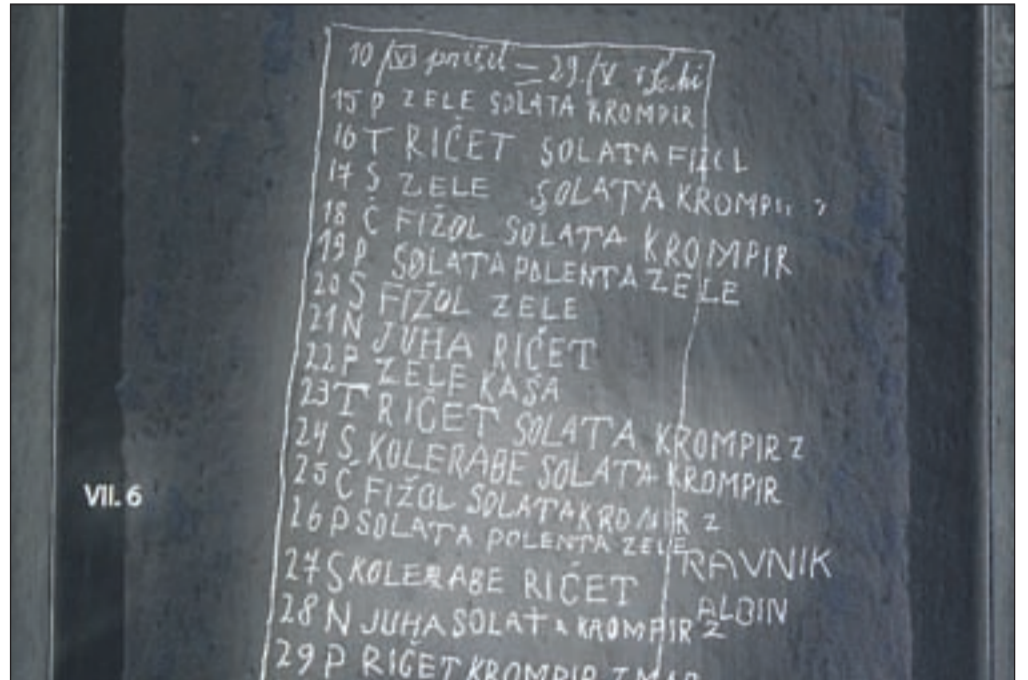 10/VI prišel = 29./V
15 P ZELE SOLATA KROMPIR
16 T RIČET SOLATA FIŽOL
17 S ZELE SOLATA
18 Č FIŽOL SOLATA KROMPIR
19 P SOLATA POLENTA ZELE
20 S FIŽOL ZELE
21 N JUHA RIČET
22 P ZELE KAŠA
23 T RIČET SOLATA KROMPIR Z
24 S KOLERABE SOLATA KROMPIR
25 Č FIŽOL SOLATA KROMIR Z
26 P SOLATA POLENTA ZELE
27 S KOLERABE RIČET
28 N JUHA SOLATA KROMPIR Z
29 P RIČET KROMPIR
RAVNIK
ALBIN
VII. 6